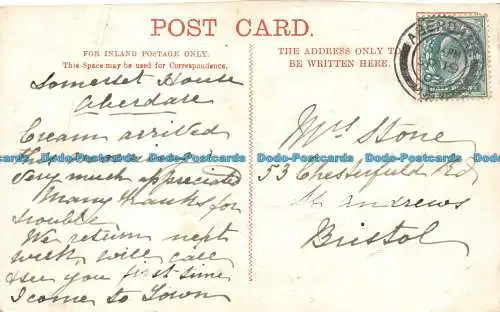 POST CARD.
FOR INLAND POSTAGE ONLY.
This Space may be used for Correspondence.
THE ADDRESS ONLY TO
BE WRITTEN HERE.
Somerset House
Aberdare
Cream arrived
this
very much appreciated
Many thanks for
trouble
We return next
week will call
& see you first time
I come to Town
Mrs Stone
53 Chesterfield Rd
St Andrews
Bristol
Dodo-Postcards Dodo-Postcards Dodo-Postcards Dodo-Postcards Dodo-Postcards